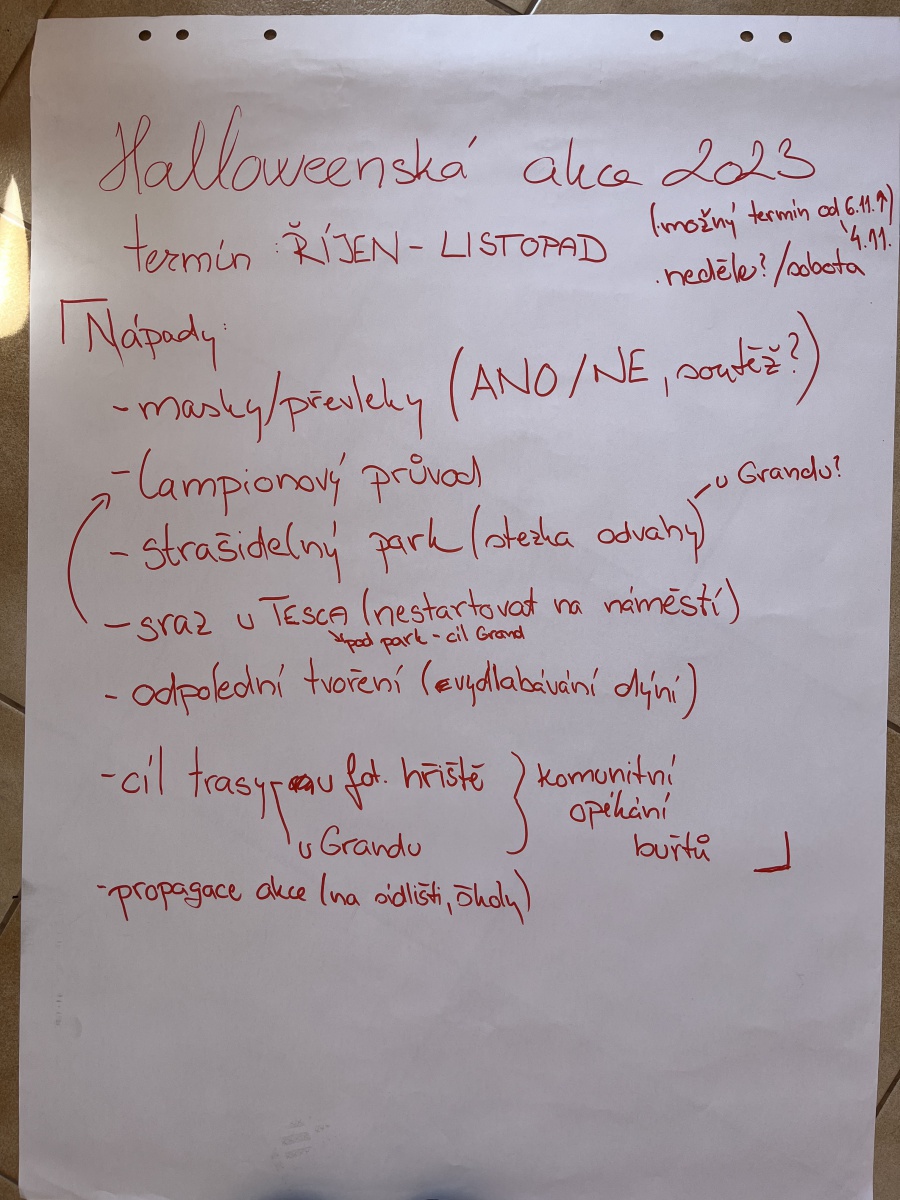 Halloweenská akce 2023
termín: ŘÍJEN - LISTOPAD
(možný termín od 6.11.↑)
4.11.
neděle? / sobota
Nápady:
- masky/převleky (ANO/NE, soutěž?)
- lampionový průvod
- strašidelný park (stezka odvahy) u Grandu?
- sraz u TESCA (nestartovat na náměstí)
pod park - cíl Grand
- odpolední tvoření (vydlabávání dýní)
- cíl trasy u fot. hřiště
u Grandu
komunitní
opékání
buřtů
- propagace akce (na sídlišti, školy)